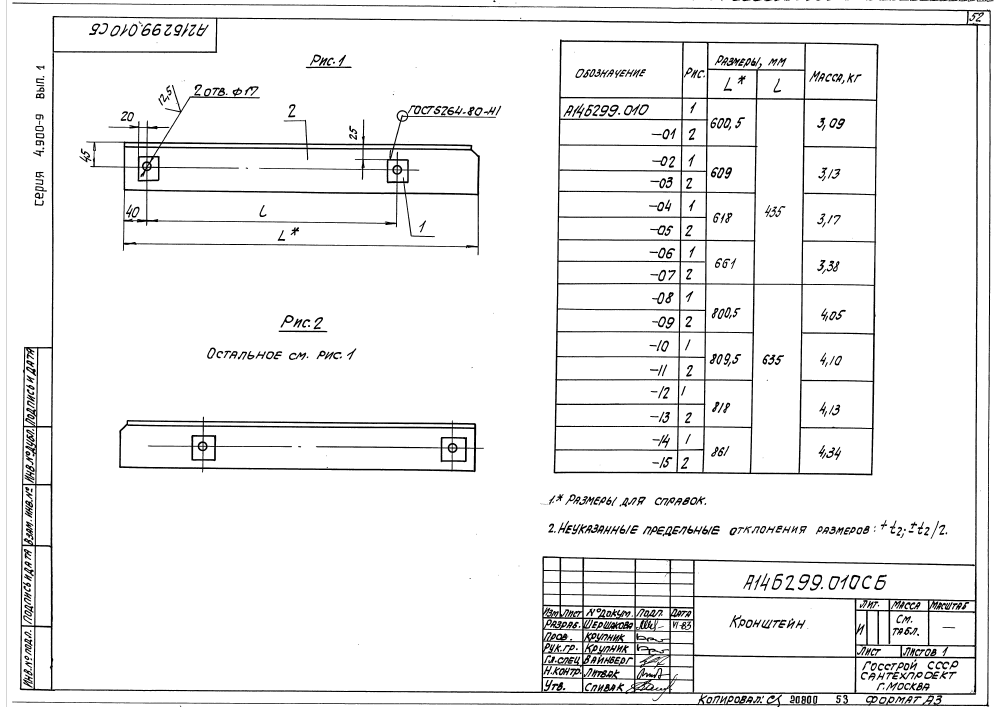 52
А14Б299.010 СБ
серия 4.900-9 вып. 1
Рис. 1
12,5
2 отв. ф17
2
ГОСТ 5264-80-Н1
20
25
45
40
L
1
L*
Рис. 2
Остальное см. рис. 1
Обозначение Рис. Размеры, мм Масса, кг
L* L
А14Б299.010 1 600,5 435 3,09
-01 2
-02 1 609 3,13
-03 2
-04 1 618 3,17
-05 2
-06 1 661 3,38
-07 2
-08 1 800,5 635 4,05
-09 2
-10 1 809,5 4,10
-11 2
-12 1 818 4,13
-13 2
-14 1 861 4,34
-15 2
1.* Размеры для справок.
2. Неуказанные предельные отклонения размеров: +t2; ±t2/2.
Инв. № подл. Подпись и дата Взам. инв. № Инв. № дубл. Подпись и дата
А14Б299.010СБ
Изм Лист № докум. Подп. Дата
Разраб. Шершакова VI-83
Пров. Крупник
Рук. гр. Крупник
Гл. спец Вайнберг
Н. контр. Литвак
Утв. Спивак
Кронштейн
Лит. Масса Масштаб
И см. табл. —
Лист Листов 1
Госстрой СССР
Сантехпроект
г. Москва
Копировал: 20800 53 Формат А3